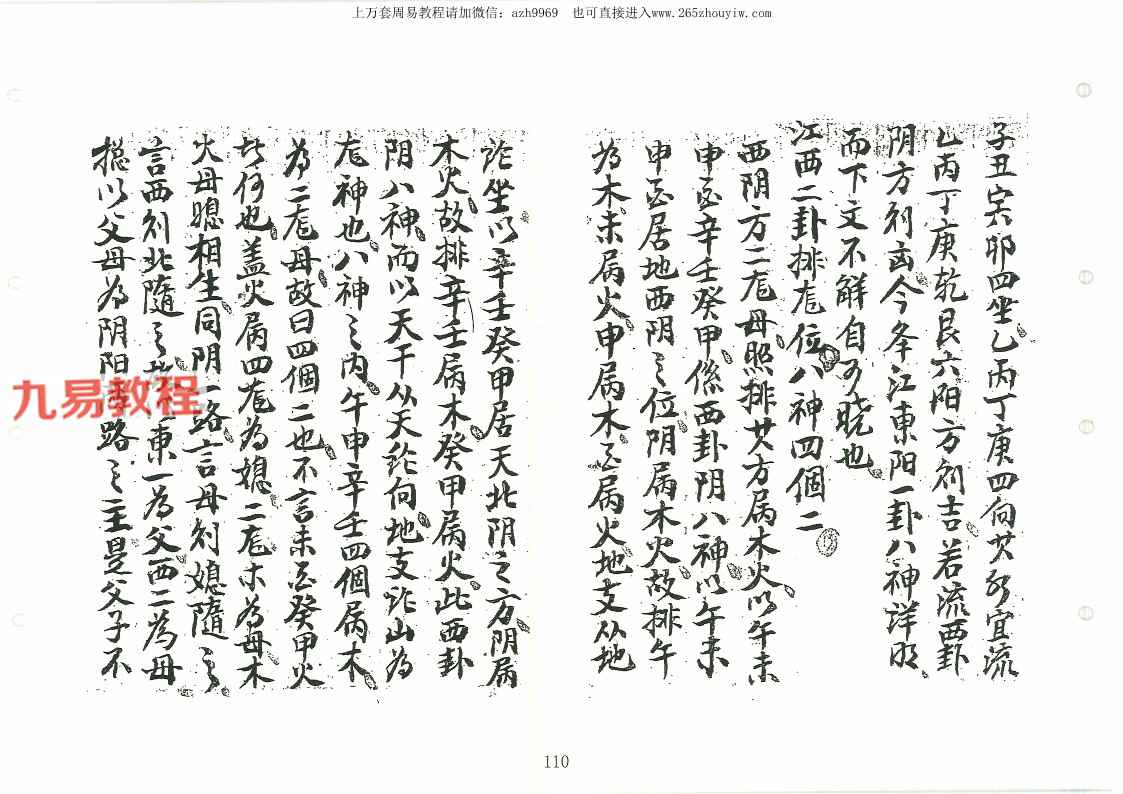 上万套周易教程请加微信：azh9969　也可直接进入www.265zhouyiw.com
子丑寅卯四坐乙丙丁庚四向其水宜流
乙丙丁庚乾艮六阳方則吉若流酉卦
阴方則凶今条江東阳一卦八神详明
而下文不解自可曉也
江西二卦排龙位八神四個二
西阴方二龙母照排其方属木火以午未
申酉辛壬癸甲係西卦阴八神以午未
申酉居地西阴之位阴属木火故排午
为木未属火申属木酉属火地支从地
论坐以辛壬癸甲居天北阴之方阴属
木火故排辛壬属木癸甲属火此西卦
阴八神而以天干从天论向地支论山为
龙神也八神之内午申辛壬四個属木
为二龙母故曰四個二也不言未酉癸甲火
者何也盖火属四龙为媳二龙木为母木
火母媳相生同阴一路言母則媳隨之
言西則北隨之東一为父西二为母
摠以父母为阴阳路之主是父子不
九易教程
110